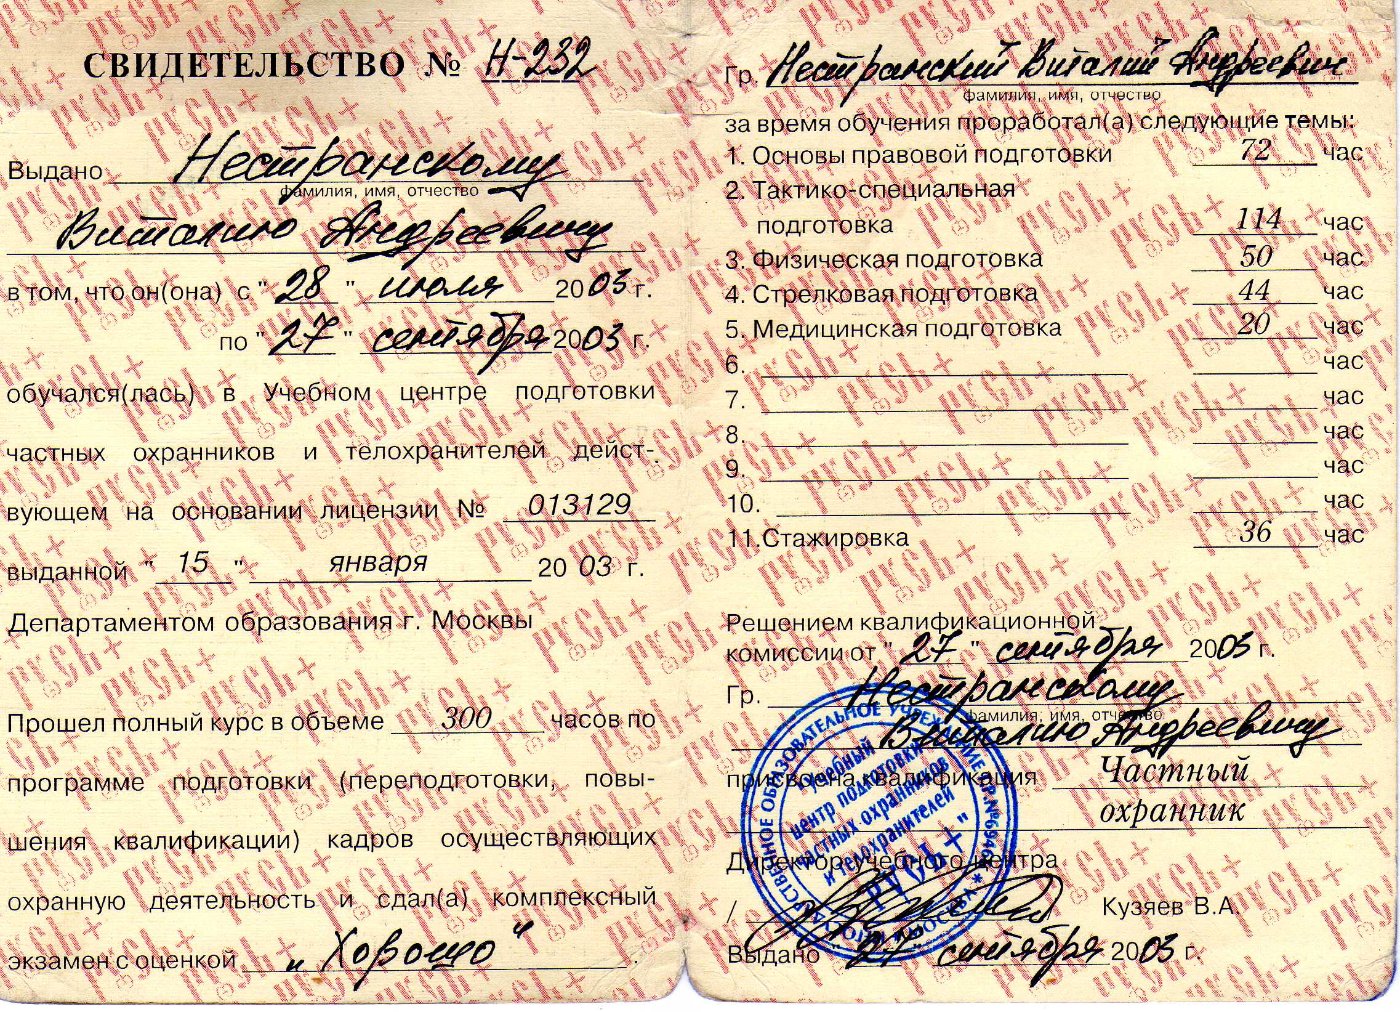 СВИДЕТЕЛЬСТВО № Н-232
Выдано Нестранскому
фамилия, имя, отчество
Виталию Андреевичу
в том, что он(она) с "28" июля 2003 г.
по "27" сентября 2003 г.
обучался(лась) в Учебном центре подготовки
частных охранников и телохранителей дейст-
вующем на основании лицензии № 013129
выданной "15" января 2003 г.
Департаментом образования г. Москвы
Прошел полный курс в объеме 300 часов по
программе подготовки (переподготовки, повы-
шения квалификации) кадров осуществляющих
охранную деятельность и сдал(а) комплексный
экзамен с оценкой „Хорошо“.
Гр. Нестранский Виталий Андреевич
фамилия, имя, отчество
за время обучения проработал(а) следующие темы:
1. Основы правовой подготовки 72 час
2. Тактико-специальная
подготовка 114 час
3. Физическая подготовка 50 час
4. Стрелковая подготовка 44 час
5. Медицинская подготовка 20 час
6. час
7. час
8. час
9. час
10. час
11. Стажировка 36 час
Решением квалификационной
комиссии от "27" сентября 2003 г.
Гр. Нестранскому
фамилия, имя, отчество
Виталию Андреевичу
присвоена квалификация Частный
охранник
Директор учебного центра
/ Кузяев В.А.
Выдано 27 сентября 2003 г.
ОБРАЗОВАТЕЛЬНОЕ УЧРЕЖДЕНИЕ
МОСКВА
Учебный
центр подготовки
частных охранников
и телохранителей
"РУСЬ+"